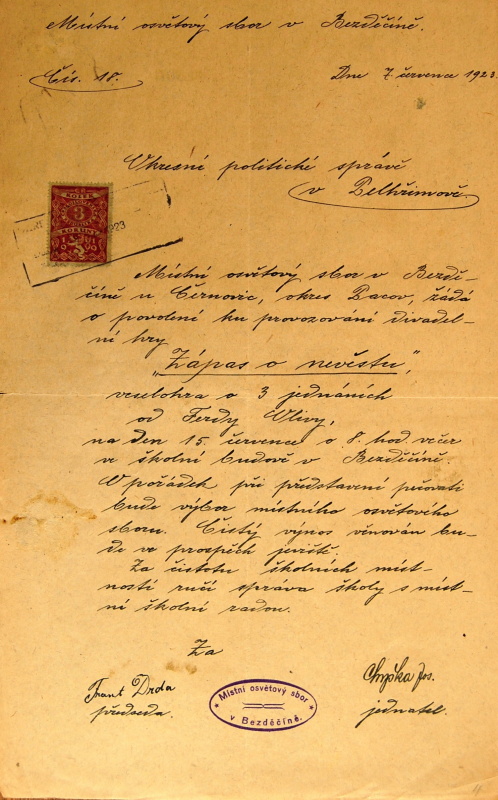 Místní osvětový sbor v Bezděčíně.
Čís. 18.
Dne 7 července 1923
Okresní politické správě
v Pelhřimově.
3
KORUNY
Místní osvětový sbor v Bezdě-
číně u Černovic, okres Pacov, žádá
o povolení ku provozování divadel-
ní hry
„Zápas o nevěstu",
veselohra o 3 jednáních
od Ferdy Olivy,
na den 15. července o 8. hod. večer
ve školní budově v Bezděčíně.
O pořádek při představení pečovati
bude výbor místního osvětového
sboru. Čistý výnos věnován bu-
de ve prospěch jeviště.
Za čistotu školních míst-
ností ručí správa školy s míst-
ní školní radou.
Za
Frant Drda
předseda.
Místní osvětový sbor
v Bezděčíně.
Jos.
jednatel.